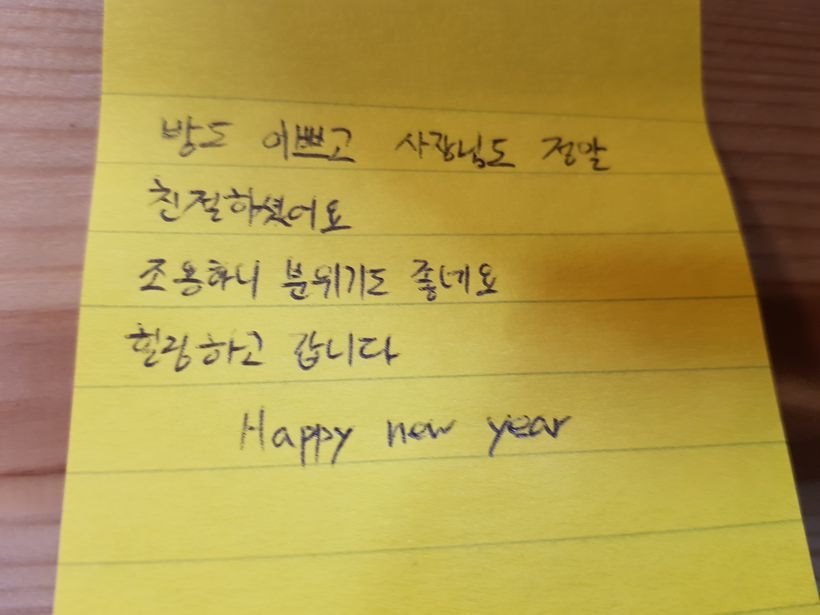 방도 이쁘고 사장님도 정말
친절하셨어요
조용하니 분위기도 좋네요
힐링하고 갑니다
Happy new year